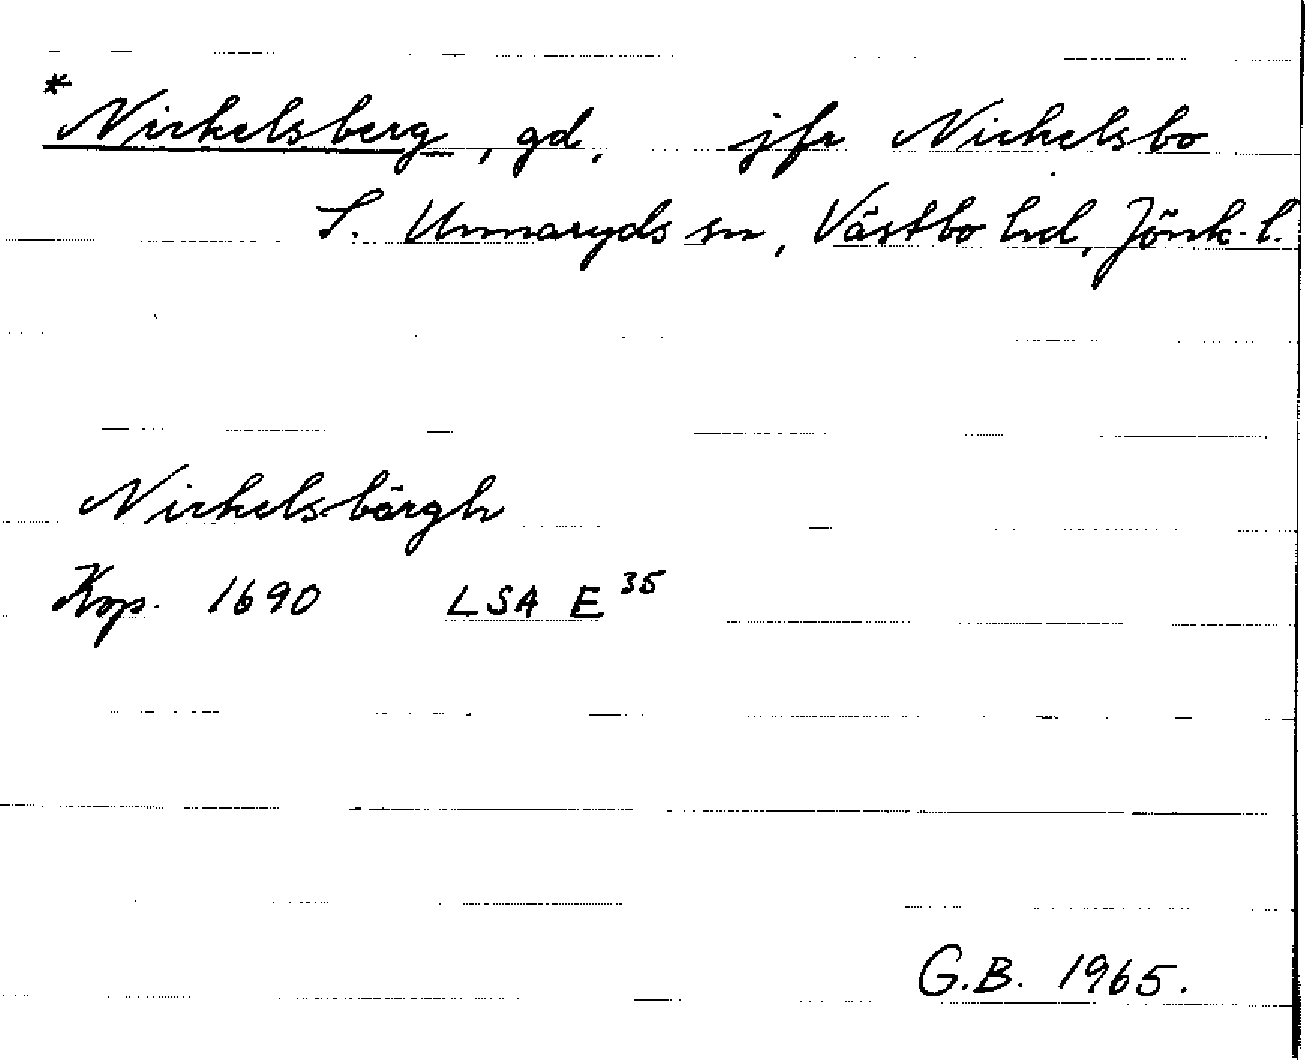 *Nickelsberg, gd. jfr Nickelsbo
S. Unnaryds sn, Västbo hd, Jönk. l.
Nickelsbärgh
Kop. 1690 LSA E 35
G.B. 1965.